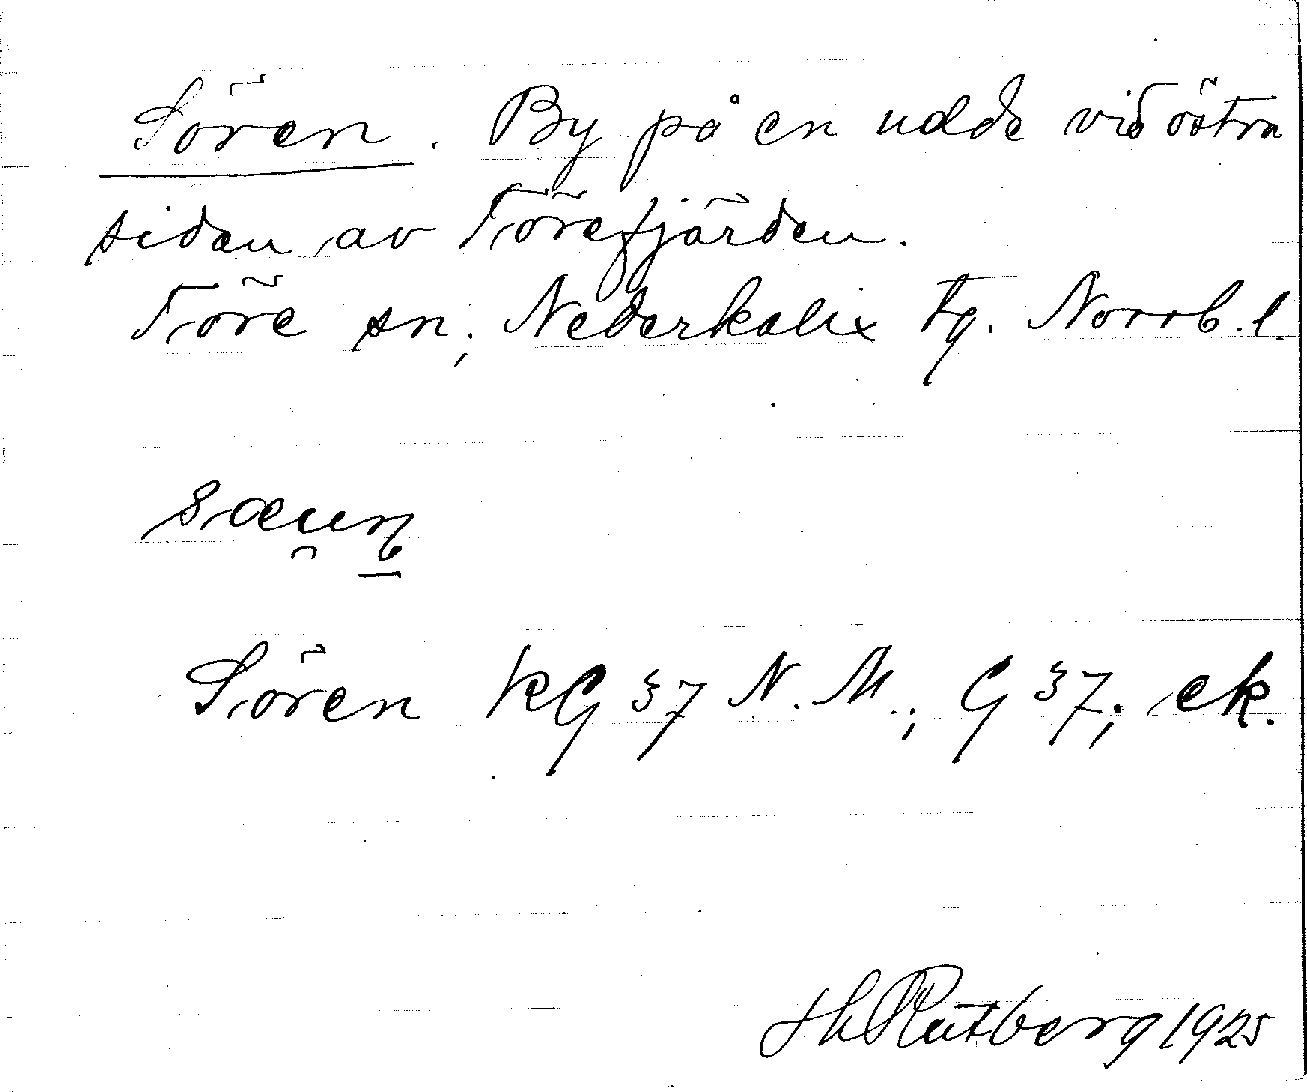 Sören. By på en udde vid östra
sidan av Törefjärden.
Töre sn; Nederkalix tg. Norrb.l.
Sören KG 37 N.M.; G 37; ek.
H Rutberg 1925